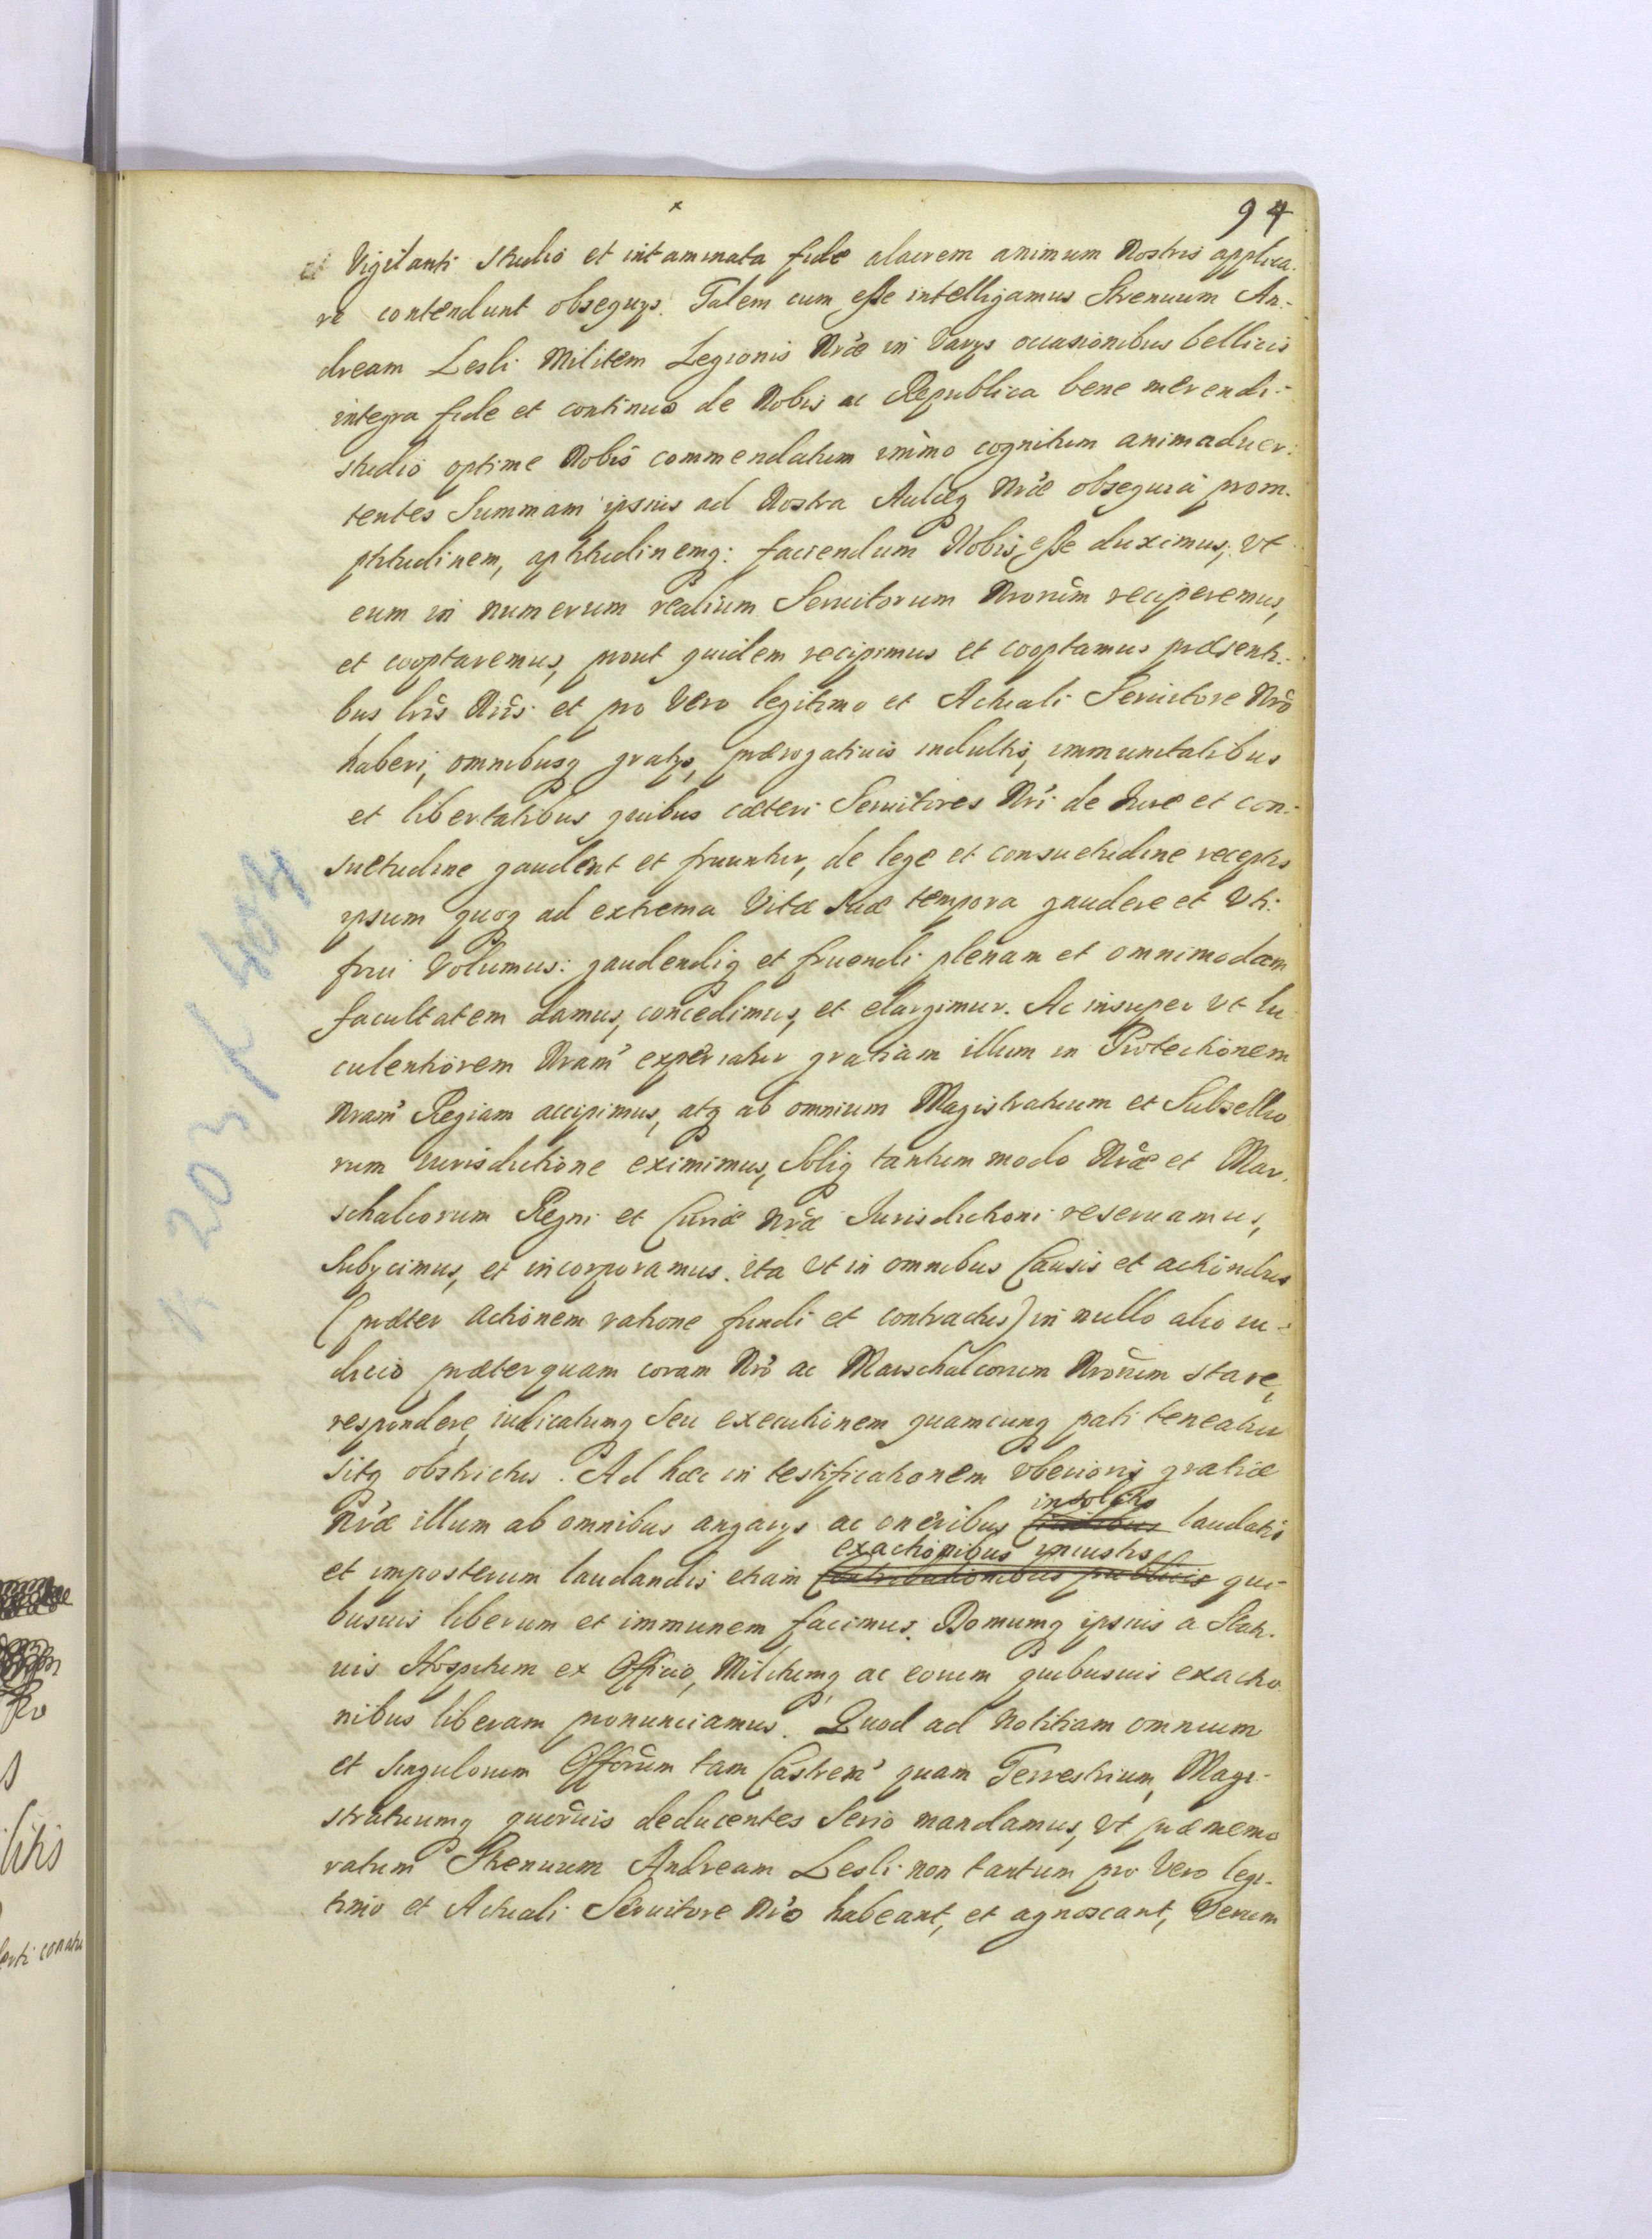 94
et Vigilanti studio et intaminata fide alacrem animum Nostris applica-
re contendunt obsequys. Talem cum esse intelligamus Strenuum An-
dream Lesli Militem Legionis Nrae in varys occasionibus bellicis
integra fide et continuo de Nobis ac Republica bene merendi
studio optime Nobis commendatum immo cognitum animaduer-
tentes Summam ipsius ad Nostra Aulaeq Nrae obsequia prom-
ptitudinem, aptitudinemq: faciendum Nobis esse duximus, vt
eum in numerum realium Seruitorum Nrorum reciperemus,
et cooptaremus, prout quidem recipimus et cooptamus praesenti-
bus lris Nris et pro Vero legitimo et Actuali Seruitore Nro
haberi, omnibusq gratys, praerogatiuis indultis, immunitatibus
et libertatibus quibus caeteri Seruitores Nri de Iure et con-
suetudine gaudent et fruuntur, de lege et consuetudine receptis
ipsum quoq ad extrema Vitae Suae tempora gaudere et Uti-
frui Volumus: gaudendiq et fruendi plenam et omnimodam
facultatem damus, concedimus, et elargimur. Ac insuper vt lu
culentiorem Nram experiatur gratiam illum in Protectionem
Nram Regiam accipimus, atq ab omnium Magistratuum et Subsellio
rum Iurisdictione eximimus, Soliq tantum modo Nrae et Mar-
schalcorum Regni et Curiae Nrae Iurisdictioni reseruamus,
Subycimus, et incorporamus. ita vt in omnibus Causis et actionibus
(praeter actionem ratione fundi et contractus) in nullo alio iu-
dicio praeterquam coram Nro ac Marschalcorum Nrorum stare,
respondere, iudicatumq seu executionem quamcunq pati teneatur
sitq obstrictus. Ad haec in testificationem vberioris gratiae
insolitis
Nrae illum ab omnibus angarys ac oneribus Ciuilibus laudatis
exactionibus iniustis
et imposterum laudandis etiam Contributionibus publicis qui-
busuis liberum et immunem facimus. Domumq ipsius a Stati-
uis Hospitum ex Officio, Militumq ac eorum quibusuis exactio
nibus liberam pronunciamus. Quod ad notitiam omnium
et singulorum Offorum tam Castren quam Terrestrium, Magi-
stratuumq quoruis deducentes Serio mandamus, vt praememo
ratum Strenuum Andream Lesli non tantum pro Vero legi-
timo et Actuali Seruitore Nro habeant, et agnoscant, Verum